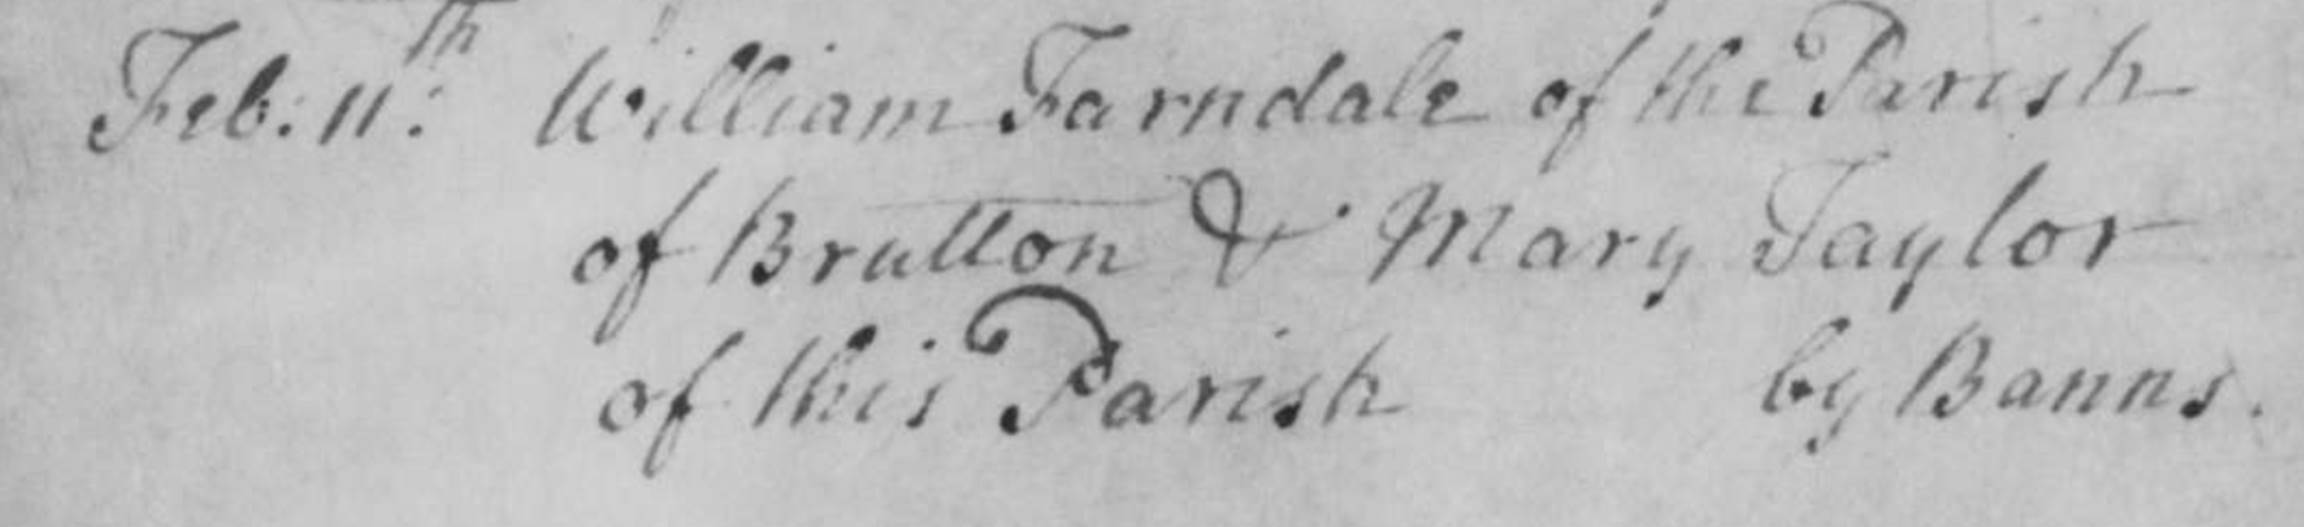 Feb: 11th: William Farndale of the Parish
of Brutton & Mary Taylor
of this Parish by Banns.